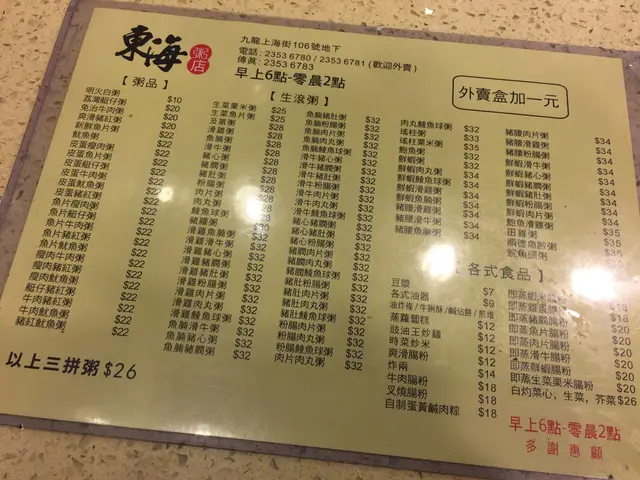 東海
粥店
九龍上海街106號地下
電話：2353 6780 / 2353 6781 (歡迎外賣)
傳真：2353 6783
早上6點-零晨2點
外賣盒加一元
【 粥品 】
明火白粥 $10
荔灣艇仔粥 $20
免治牛肉粥 $20
爽滑豬紅粥 $20
新鮮魚片粥 $22
魷魚粥
皮蛋瘦肉粥 $22
皮蛋魚片粥 $22
皮蛋艇仔粥 $22
皮蛋牛肉粥 $22
皮蛋魷魚粥 $22
皮蛋豬紅粥 $22
魚片瘦肉粥 $22
魚片艇仔粥 $22
魚片牛肉粥 $22
魚片豬紅粥 $22
魚片魷魚粥 $22
瘦肉牛肉粥 $22
瘦肉豬紅粥 $22
瘦肉魷魚粥 $22
艇仔豬紅粥 $22
牛肉豬紅粥 $22
牛肉魷魚粥 $22
豬紅魷魚粥 $22
以上三拼粥 $26
【 生滾粥 】
生菜粟米粥 $25
生菜魚片粥
及第粥
滑雞粥
魚腩粥
滑牛粥
豬心粥
豬膶粥
豬肚粥
粉腸粥
肉片粥
肉丸粥
鯪魚球粥
豬腰粥
滑雞魚腩粥
滑雞滑牛粥
滑雞豬心粥
滑雞豬膶粥
滑雞豬肚粥
滑雞粉腸粥
滑雞肉片粥
滑雞肉丸粥
滑雞鯪魚球粥
魚腩滑牛粥
魚腩豬心粥
魚腩豬膶粥 $32
魚腩豬肚粥 $32
魚腩粉腸粥 $32
魚腩肉片粥 $32
魚腩肉丸粥 $32
魚腩鯪魚球粥 $32
滑牛豬心粥 $32
滑牛豬膶粥 $32
滑牛豬肚粥 $32
滑牛粉腸粥 $32
滑牛肉片粥 $32
滑牛肉丸粥 $32
滑牛鯪魚球粥 $32
豬心豬膶粥 $32
豬心豬肚粥 $32
豬心粉腸粥 $32
豬膶肉片粥 $32
豬膶肉丸粥 $32
豬膶鯪魚球粥 $32
豬肚粉腸粥 $32
豬肚肉片粥 $32
豬肚肉丸粥 $32
豬肚鯪魚球粥 $32
粉腸肉片粥 $32
粉腸肉丸粥 $32
粉腸鯪魚球粥 $32
肉片肉丸粥 $32
肉丸鯪魚球粥 $32
瑤柱粥
瑤柱粟米粥
鮑魚粥
鮮蝦粥
鮮蝦肉丸粥
鮮蝦鯪魚球粥
鮮蝦滑雞粥
鮮蝦魚腩粥
豬腰滑雞粥
豬腰滑牛粥
豬腰魚腩粥 $34
豬腰肉片粥 $34
豬腰滑雞粥 $34
豬腰粉腸粥 $34
鮮蝦滑牛粥 $34
鮮蝦豬心粥 $34
鮮蝦豬膶粥 $34
鮮蝦豬肚粥 $34
鮮蝦粉腸粥 $34
鮮蝦肉片粥 $34
鮑魚滑雞粥
田雞粥 $35
順德魚餃粥 $35
鯇魚頭粥 $35
【 各式食品 】
豆漿 $7
各式油器 $9
油炸條 / 牛脷酥 / 鹹佔餅 / 煎堆
蒸蘿蔔糕 $12
豉油王炒麵 $12
時菜炒米 $12
爽滑腸粉 $12
炸兩 $14
牛肉腸粉 $18
叉燒腸粉 $18
自制蛋黃鹹肉粽 $18
即蒸蝦米腸粉
即蒸滑雞腸粉
即蒸豬膶腸粉
即蒸魚片腸粉
即蒸肉片腸粉
即蒸滑牛腸粉
即蒸鮮蝦腸粉
即蒸生菜粟米腸粉 $20
白灼菜心，生菜，芥菜 $26
早上6點-零晨2點
多謝惠顧